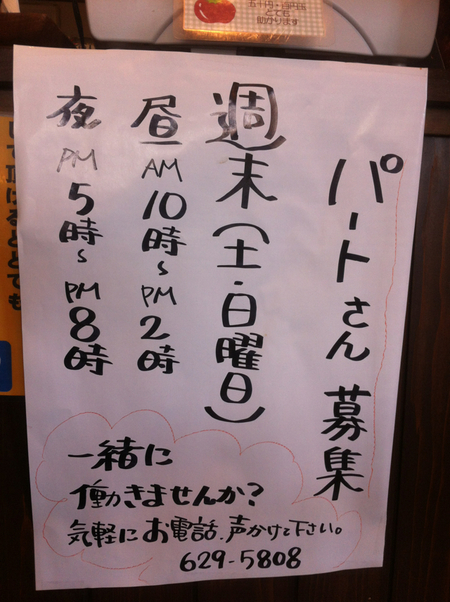 五十円・百円玉
とても
助かります
パートさん募集
週末(土・日曜日)
昼 AM10時~PM2時
夜 PM5時~PM8時
一緒に
働きませんか?
気軽にお電話、声かけて下さい。
629-5808